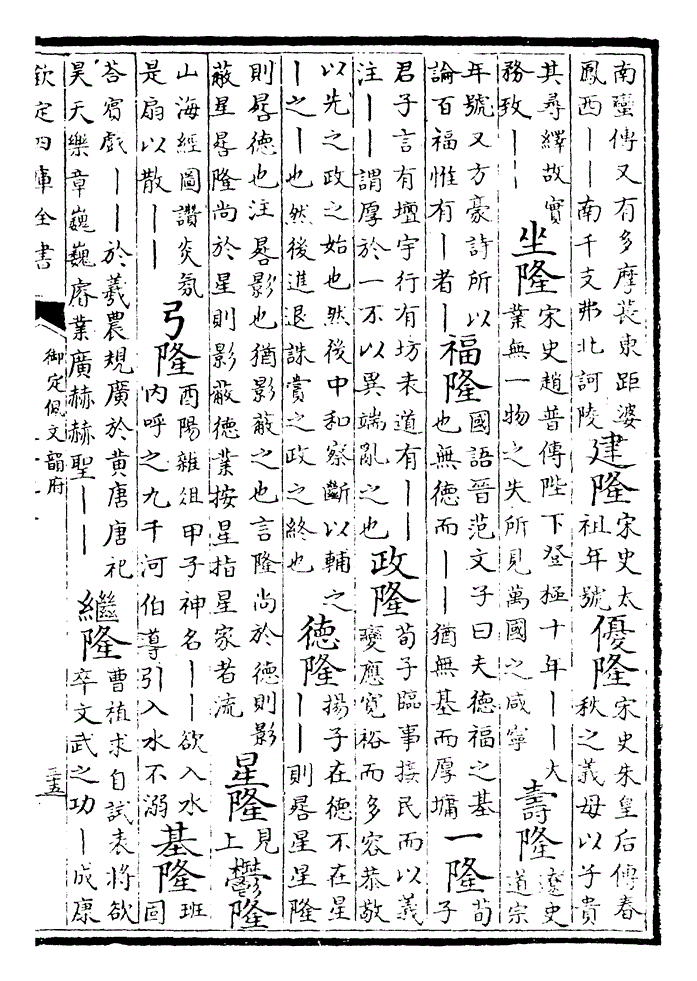 南蠻傳又有多摩萇東距婆
鳳西丨丨南千支弗北訶陵
建隆
宋史太
祖年號
優隆
宋史朱皇后傳春
秋之義母以子貴
其尋繹故實
務致丨丨
坐隆
宋史趙普傳陛下登極十年丨丨大
業無一物之失所見萬國之咸寧
壽隆
遼史
道宗
年號又方豪詩所以
論百福惟有丨者丨
福隆
國語晉范文子曰夫德福之基
也無德而丨丨猶無基而厚墉
一隆
荀
子
君子言有壇宇行有坊表道有丨丨
注丨丨謂厚於一不以異端亂之也
政隆
荀子臨事接民而以義
變應寛裕而多容恭敬
以先之政之始也然後中和察斷以輔之
丨之丨也然後進退誅賞之政之終也
德隆
揚子在德不在星
丨丨則晷星星隆
則晷德也注晷影也猶影蔽之也言隆尚於德則影
蔽星晷隆尚於星則影蔽德業按星指星家者流
星隆
見
上
鬱隆
山海經圖讚炎氛
是扇以散丨丨
弓隆
酉陽雜俎甲子神名丨丨欲入水
内呼之九千河伯導引入水不溺
基隆
班
固
荅賓戲丨丨於羲農規廣於黄唐唐祀
昊天樂章巍巍睿業廣赫赫聖丨丨
繼隆
曹植求自試表將欲
卒文武之功丨成康
欽定四庫全書
御定佩文韻府
三五